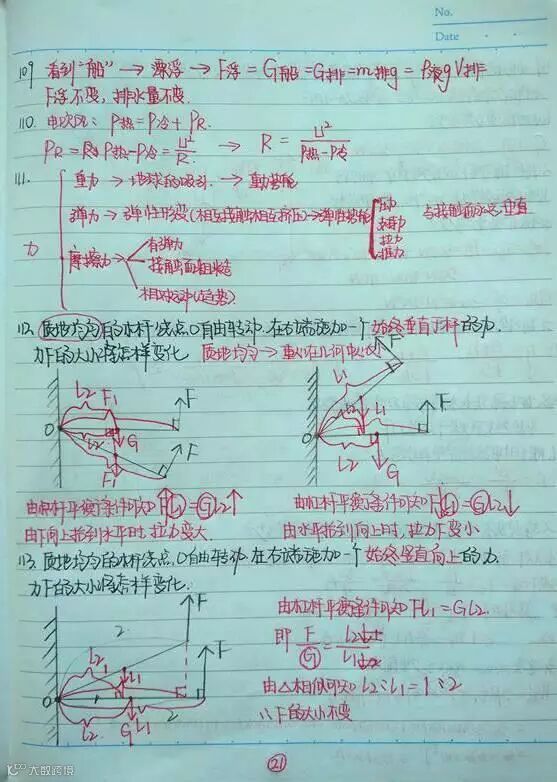 No.
Date
109 看到"船" → 漂浮 → F浮 = G船 = G排 = m排g = ρ液gV排
F浮不变, 排水量不变.
110. 电吹风: P热 = P冷 + PR.
PR = P热 - P冷 = U²/R. → R = U²/(P热 - P冷)
111.
力
重力 → 地球的吸引 → 重力势能
弹力 → 弹性形变(相互接触相互挤压) → 弹性势能
压力
支持力
拉力
推力
与接触面永远垂直
摩擦力 →
有弹力
接触面粗糙
相对运动(趋势)
112. 质地均匀的木杆绕点O自由转动. 在右端施加一个始终垂直于杆的力.
力F的大小将怎样变化 质地均匀 → 重心在几何中心
L2 F1 F
O L2 G
F1 F
F
L1
L1 F
O L2 G
由杠杆平衡条件可知 F↑L1 = G L2↑
由下向上抬到水平时, 拉力变大.
由杠杆平衡条件可知 F↓L1 = G L2↓
由水平抬到向上时, 拉力F变小
113. 质地均匀的木杆绕点O自由转动. 在右端施加一个始终竖直向上的力.
力F的大小将怎样变化.
F
2
L2 F
O L1
L2 G L1 2
由杠杆平衡条件可知 FL1 = GL2.
即 F/G = L2/L1
由△相似可知 L2:L1 = 1:2
∴ F的大小不变
21
大数跨境